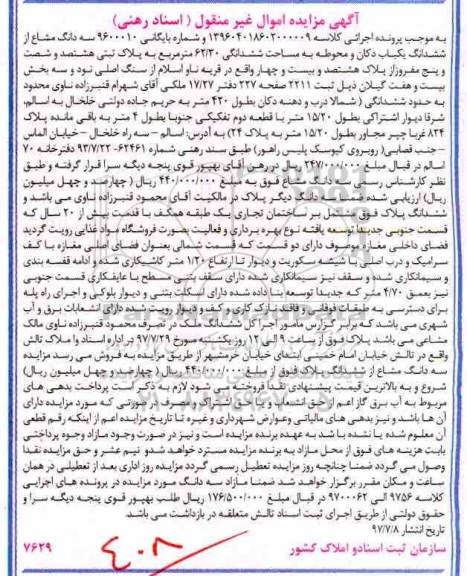 آگهی مزایده اموال غیر منقول ( اسناد رهنی)
به موجب پرونده اجرائی کلاسه ۱۳۹۶۰۴۰۱۸۶۰۲۰۰۰۰۰۹ و شماره بایگانی ۹۶۰۰۰۱۰ سه دانگ مشاع از
ششدانگ یکباب دکان و محوطه به مساحت ششدانگی ۶۲/۳۰ مترمربع به پلاک ثبتی هشتصد و شصت
و پنج مفروز از پلاک هشتصد و بیست و چهار واقع در قریه ناو اسلام از سنگ اصلی نود و سه بخش
بیست و هفت گیلان ذیل ثبت ۲۲۱۱ صفحه ۲۲۷ دفتر ۱۷/۲۷ ملکی آقای شهرام قنبرزاده ناوی محدود
به حدود ششدانگی ( شمالا درب و دهنه دکان بطول ۴۲۰ متر به حریم جاده دولتی خلخال به اسالم،
شرقا دیوار اشتراکی بطول ۱۵/۲۰ متر با قطعه دوم تفکیکی جنوبا بطول ۴ متر به باقی مانده پلاک
۸۲۴ غربا چپر مجاور بطول ۱۵/۲۰ متر به پلاک ۲۴) به آدرس: اسالم - سه راه خلخال - خیابان الماس
- جنب قصابی( روبروی کیوسک پلیس راهور) طبق سند رهنی شماره ۶۲۴۶۱- ۹۳/۷/۲۲ دفترخانه ۷۰
اسالم در قبال مبلغ ۲۴۷/۰۰۰/۰۰۰ ریال در رهن آقای بهپور قوی پنجه دیگه سرا قرار گرفته و طبق
نظر کارشناس رسمی سه دانگ مشاع فوق به مبلغ ۴۴۰/۰۰۰/۰۰۰ ریال ( چهارصد و چهل میلیون
ریال) ارزیابی شده است و سه دانگ دیگر پلاک در مالکیت آقای محمود قنبرزاده ناوی می باشد و
ششدانگ پلاک فوق مشتمل بر ساختمان تجاری یک طبقه همکف با قدمت بیش از ۲۰ سال که
قسمت جنوبی جدیدا توسعه یافته نوع بهره برداری و فعالیت بصورت فروشگاه مواد غذایی رویت گردید
فضای داخلی مغازه موصوف دارای دو قسمت که قسمت شمالی بعنوان فضای اصلی مغازه با کف
سرامیک و درب اصلی با شیشه سکوریت و دیوار تا ارتفاع ۱/۲۰ متر کاشیکاری شده و ادامه قفسه بندی
و سیمانکاری شده و سقف نیز سیمانکاری شده دارای سقف بتنی مسطح با عایقکاری قسمت جنوبی
نیز بعمق ۴/۷۰ متر که جدیدا توسعه بنا داده شده دارای اسکلت بتنی و دیوار بلوکی و اجرای راه پله
برای دسترسی به طبقات فوقانی و فاقد نازک کاری و کف و دیوار رویت گردید دارای انشعابات برق و آب
شهری می باشد که برابر گزارش مامور اجرا کل ششدانگ ملک در تصرف محمود قنبرزاده ناوی مالک
مشاعی می باشد پلاک فوق از ساعت ۹ الی ۱۲ روز یکشنبه مورخ ۹۷/۷/۲۹ در اداره اسناد و املاک تالش
واقع در تالش خیابان امام خمینی ابتدای خیابان خرمشهر از طریق مزایده به فروش می رسد مزایده
سه دانگ مشاع از ششدانگ پلاک فوق از مبلغ ۴۴۰/۰۰۰/۰۰۰ ریال( چهارصد و چهل میلیون ریال)
شروع و به بالاترین قیمت پیشنهادی نقدا فروخته می شود لازم به ذکر است پرداخت بدهی های
مربوط به آب برق گاز اعم از حق انشعاب و یا حق اشتراک و مصرف در صورتی که مورد مزایده دارای
آن ها باشد و نیز بدهی های مالیاتی وعوارض شهرداری و غیره تا تاریخ مزایده اعم از اینکه رقم قطعی
آن معلوم شده یا نشده باشد به عهده برنده مزایده است و نیز در صورت وجود مازاد وجوه پرداختی
بابت هزینه های فوق از محل مازاد به برنده مزایده مسترد خواهد شدو نیم عشر و حق مزایده نقدا
وصول می گردد ضمنا چنانچه روز مزایده تعطیل رسمی گردد مزایده روز اداری بعد از تعطیلی در همان
ساعت و مکان مقرر برگزار خواهد شد ضمنا مازاد سه دانگ مورد مزایده در پرونده های اجرایی
کلاسه ۹۷۵۶ الی ۹۷۰۰۰۶۲ در قبال مبلغ ۱۷۶/۵۰۰/۰۰۰ ریال طلب بهپور قوی پنجه دیگه سرا و
حقوق دولتی از طریق اجرای ثبت اسناد تالش متعلقه در بازداشت می باشد.
تاریخ انتشار ۹۷/۷/۸
سازمان ثبت اسنادو املاک کشور
۷۶۲۹
۴۰۸